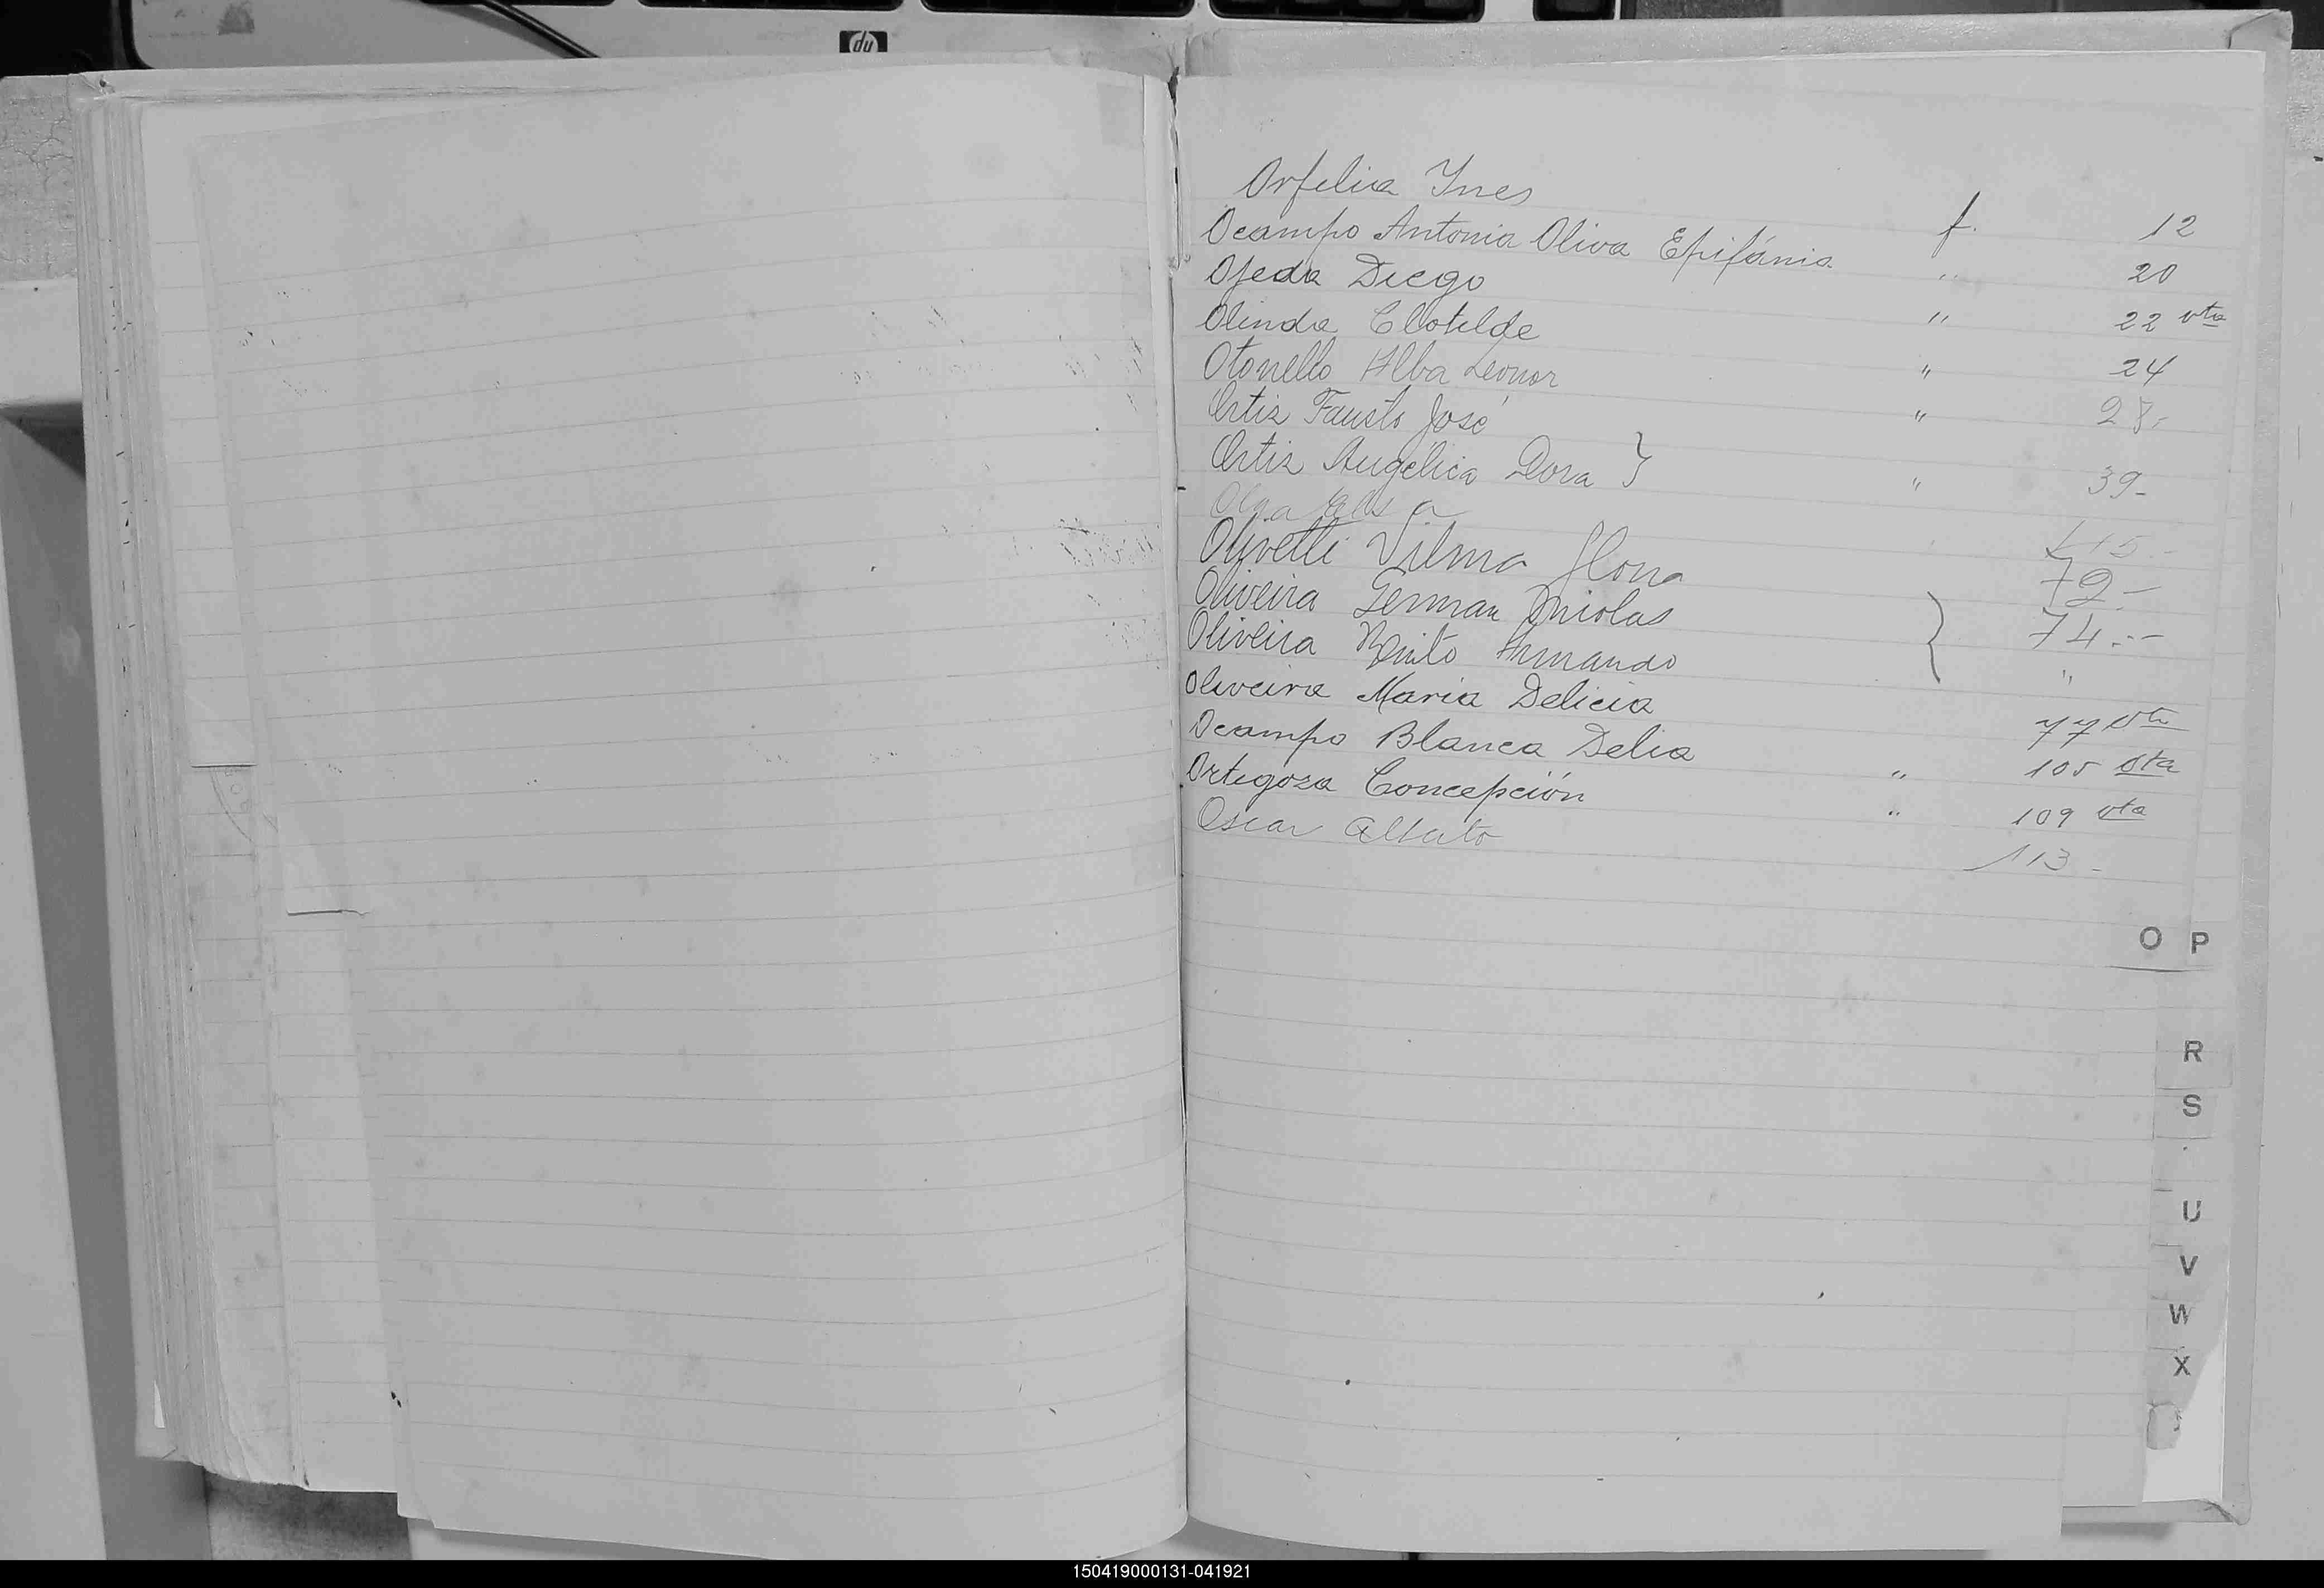 hp
Orfelia Ines f. 12
Ocampo Antonia Oliva Epifánia " 20
Ojeda Diego " 22 vta
Olinda Clotilde " 24
Otonello Alba Leonor " 28.-
Ortiz Fausto José
Ortiz Angélica Dora } " 39-
Olga
Olivetti Vilma 72.-
Oliveira German 74.-
Oliveira Benito Armando "
Oliveira Maria Delicia 77 vta
Ocampo Blanca Delia " 105 vta
Ortegoza Concepción " 109 vta
Oscar Alberto 113-
O P
R
S
U
V
W
X
150419000131-041921